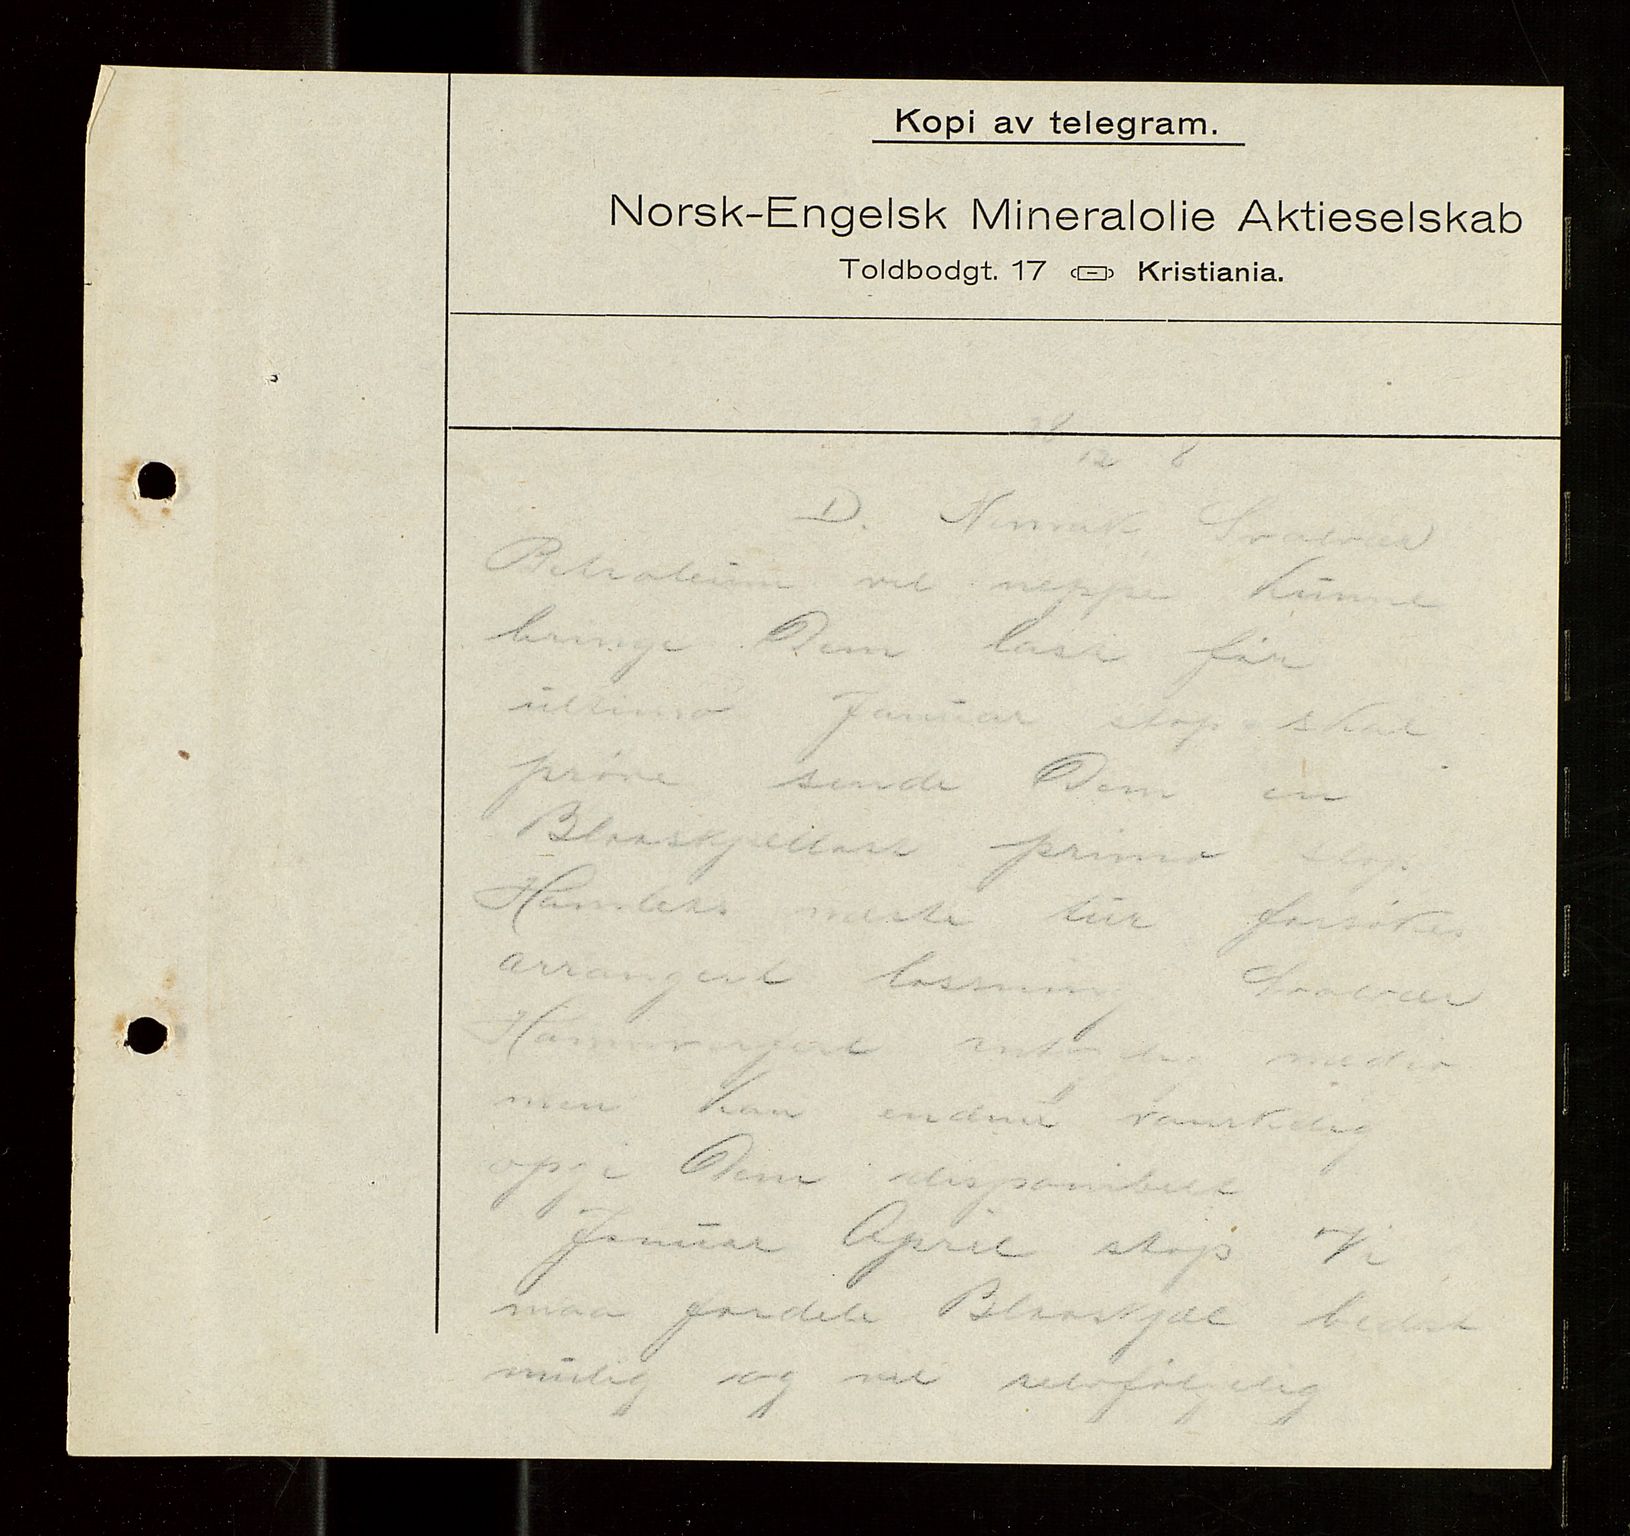 Kopi av telegram.
Norsk-Engelsk Mineralolie Aktieselskab
Toldbodgt. 17 Kristiania.
12
D. Svolvær
Petroleum vil neppe kunne
bringe Dem last før
ultimo Januar stop skal
prøve sende Dem en
Blaaskjellast primo stop
Hamlets næste tur forsøkes
arrangert losning Svolvær
medio
men kan endnu vanskelig
opgi Dem disponibelt
Januar April stop Vi
maa fordele Blaaskjæl bedst
mulig og vil selvfølgelig